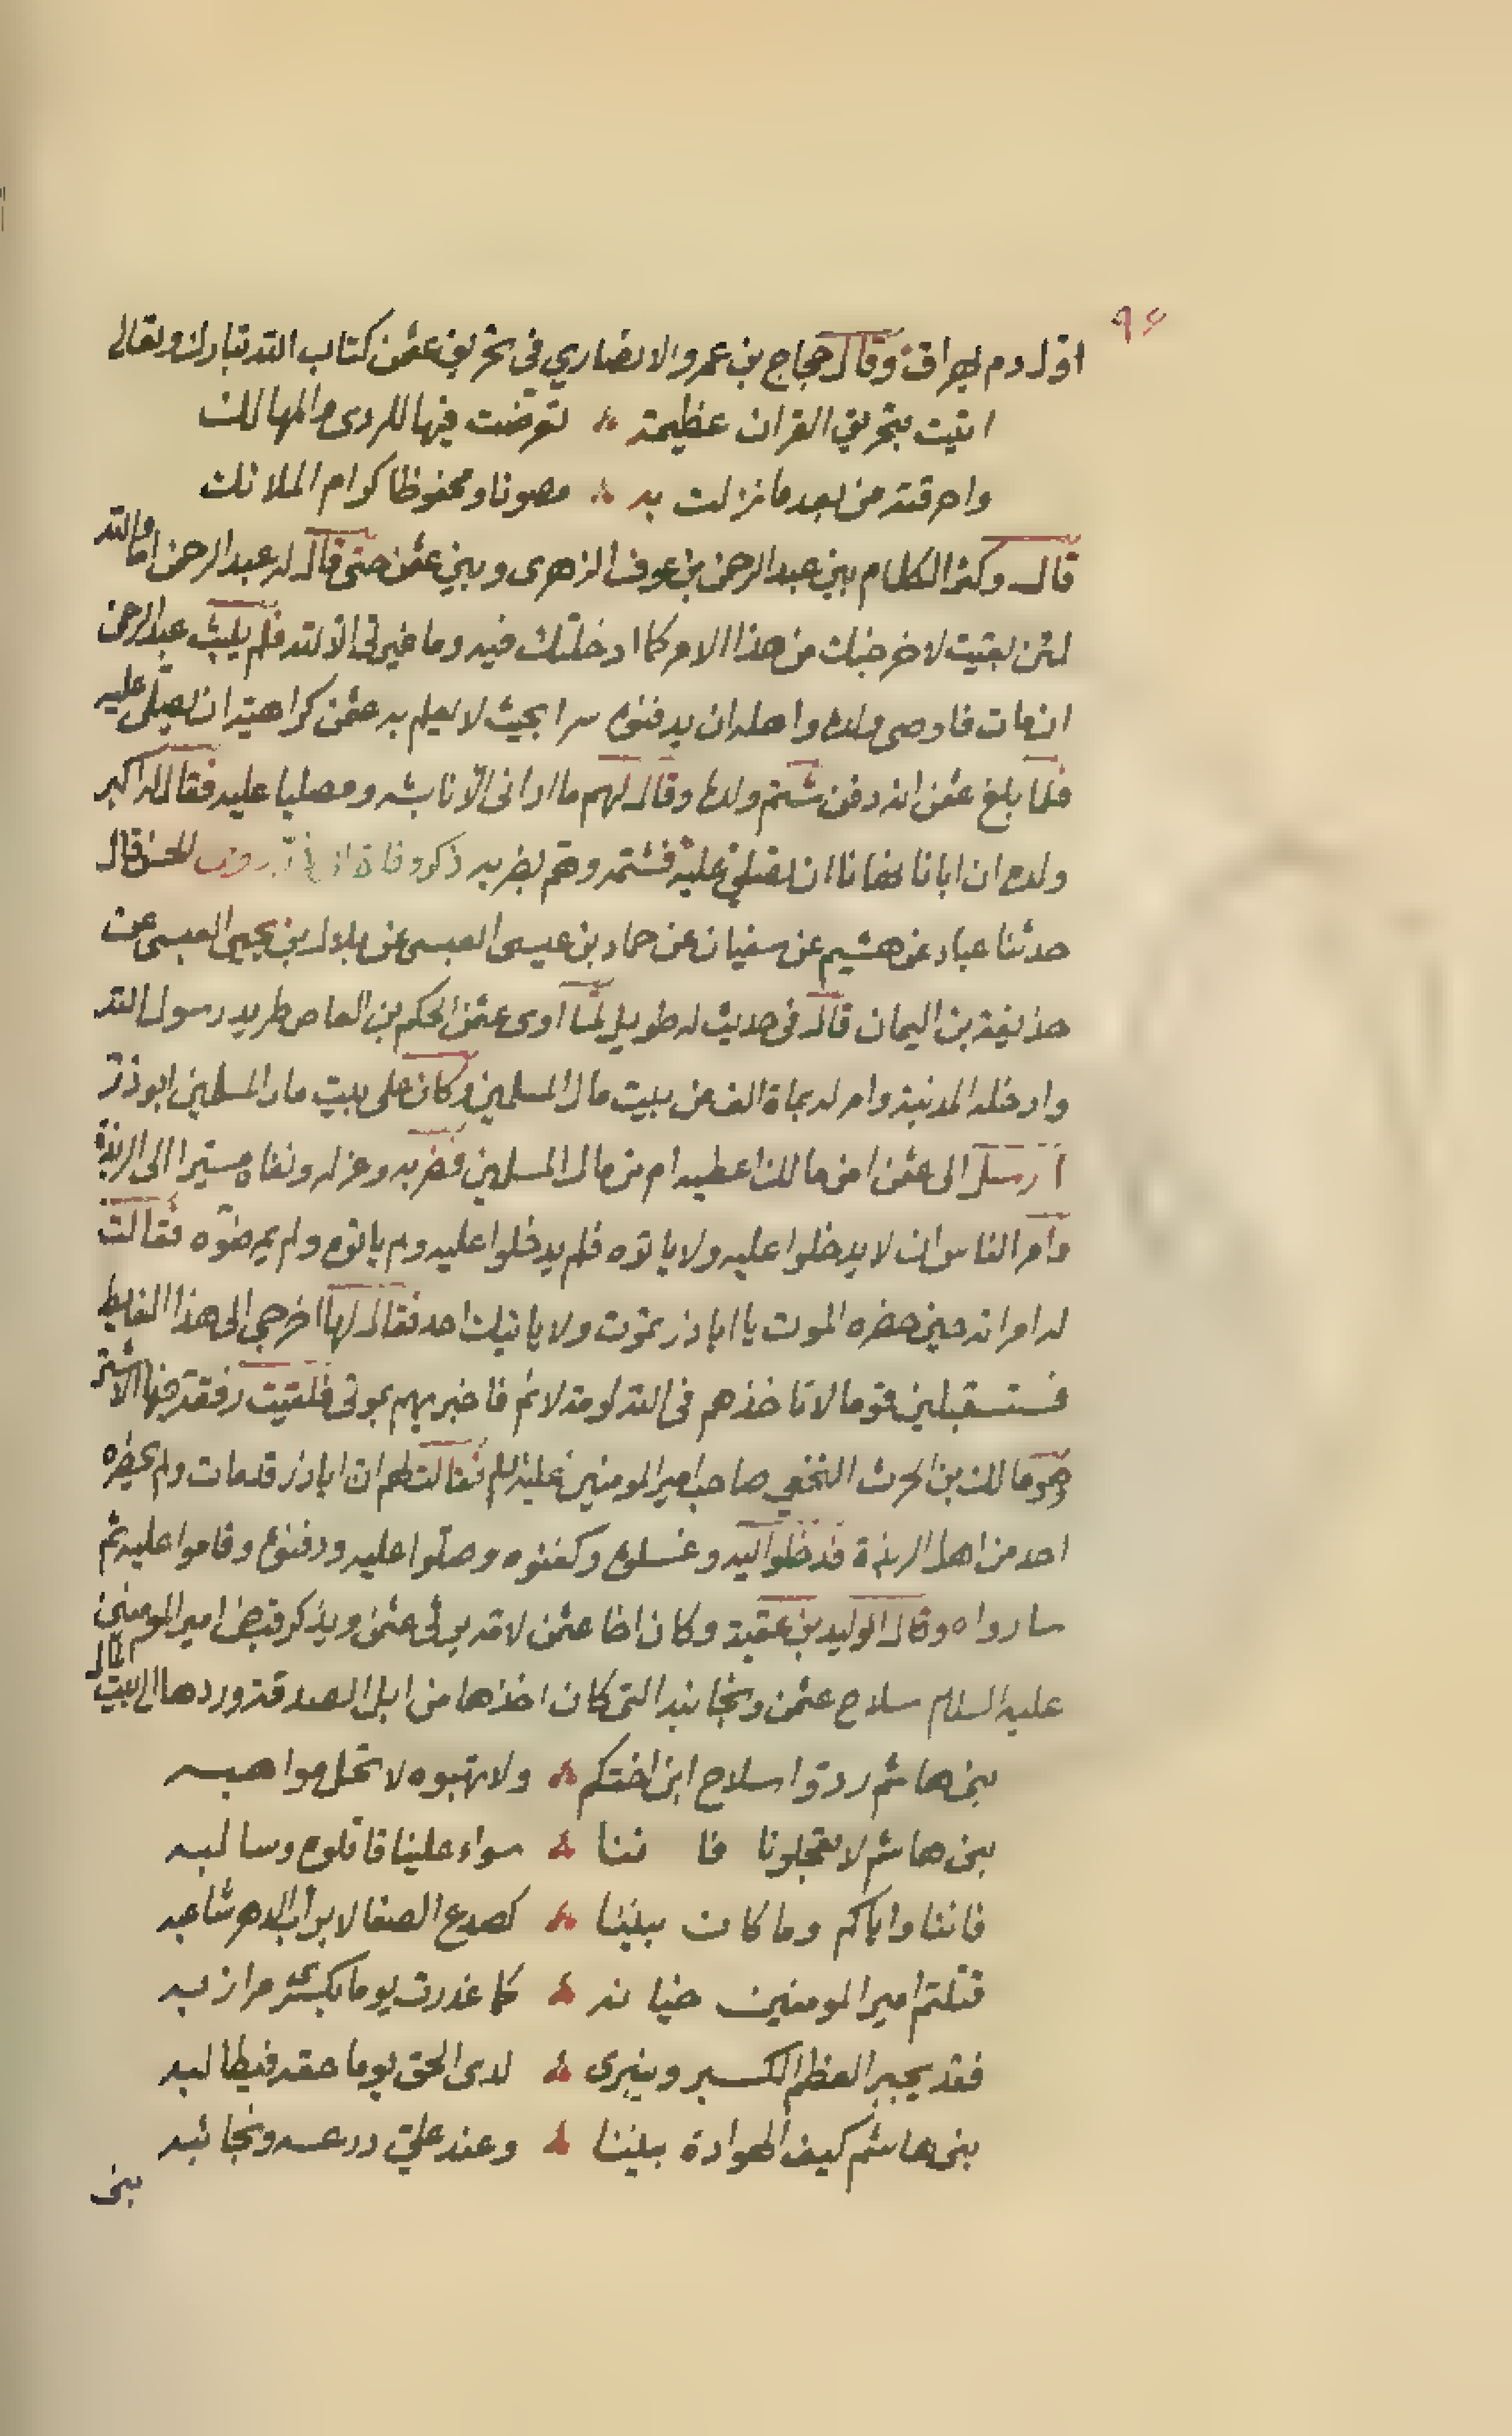 ٩٤
اول دم يهراق وقال حجاج بن عمرو الانصاري في تحريق عثمن كتاب الله تبارك وتعالى
اتيت بتحريق القران عظيمة تعرضت فيها للردى والمهالك
واحرقته من بعد ما نزلت به مصونا ومحفوظا كرام الملائك
قال وكثر الكلام بين عبد الرحمن بن عوف الزهرى وبين عثمن حتى قال له عبد الرحمن اما والله
لئن بقيت لاخرجنك من هذا الامر كما ادخلتك فيه وما غيرتى الا لله فلم يلبث عبد الرحمن
ان مات فاوصى ولده واهله ان يدفنوه سرا بحيث لا يعلم به عثمن كراهية ان يصلى عليه
فلما بلغ عثمن انه دفن شتم ولده وقال لهم ما ارانى الا نابشه ومصليا عليه فقال له اكبر
ولده ان ابانا نهانا ان تصلي عليه فشتمه وهم بضربه ذكر وفاة ابي ذر قال
حدثنا عباد عن هشيم عن سفيان عن حماد بن عيسى العبسى عن بلال بن يحيى العبسى عن
حذيفة بن اليمان قال في حديث له طويل لما آوى عثمن الحكم بن العاص طريد رسول الله
وادخله المدينة وامر له بماة الف من بيت مال المسلمين وكان على بيت مال المسلمين ابو ذر
ارسل الى عثمن امن مالك اعطيه ام من مال المسلمين فضربه وعزله ونفاه مسيرا الى الربذة
وامر الناس ان لا يدخلوا عليه ولا ياتوه فلم يدخلوا عليه ولم ياتوه ولم يمرضوه فقالت
له امراته حين حضره الموت يا ابا ذر تموت ولا ياتيك احد فقال لها اخرجي الى هذا الغليط
فستستقبلين قوما لا تاخذهم فى الله لومة لائم فاخبريهم بموتى فلقيت رفقة فيها الاشتر
وهو مالك بن الحرث النخعي صاحب امير المومنين عليه السلم فقالت لهم ان ابا ذر قد مات ولم يحضره
احد من اهل الربذة فدخلوا اليه وغسلوه وكفنوه وصلوا عليه ودفنوه وقاموا عليه ثم
ساروا ه وقال الوليد بن عقبة وكان اخا عثمن لامه يرثى عثمن ويذكر قبض امير المومنين
عليه السلام سلاح عثمن ونجائبه التى كان اخذها من ابل الصدقة وردها الى بيت المال
بنى هاشم ردوا سلاح ابن اختكم ولا تهبوه لا تحل مواهبه
بنى هاشم لا تعجلونا فاننا سواء علينا قاتلوه وسالبه
فاننا واياكم وما كان بيننا كصدع الصفا لا يراب الدهر شاعبه
قتلتم امير المومنين خيانة كما غدرت يوما بكسرى مرازبه
فقد يجبر العظم الكسير وينبرى لدى الحق يوما حقه فيطالبه
بنى هاشم كيف الهوادة بيننا وعند علي درعه ونجائبه
بنى